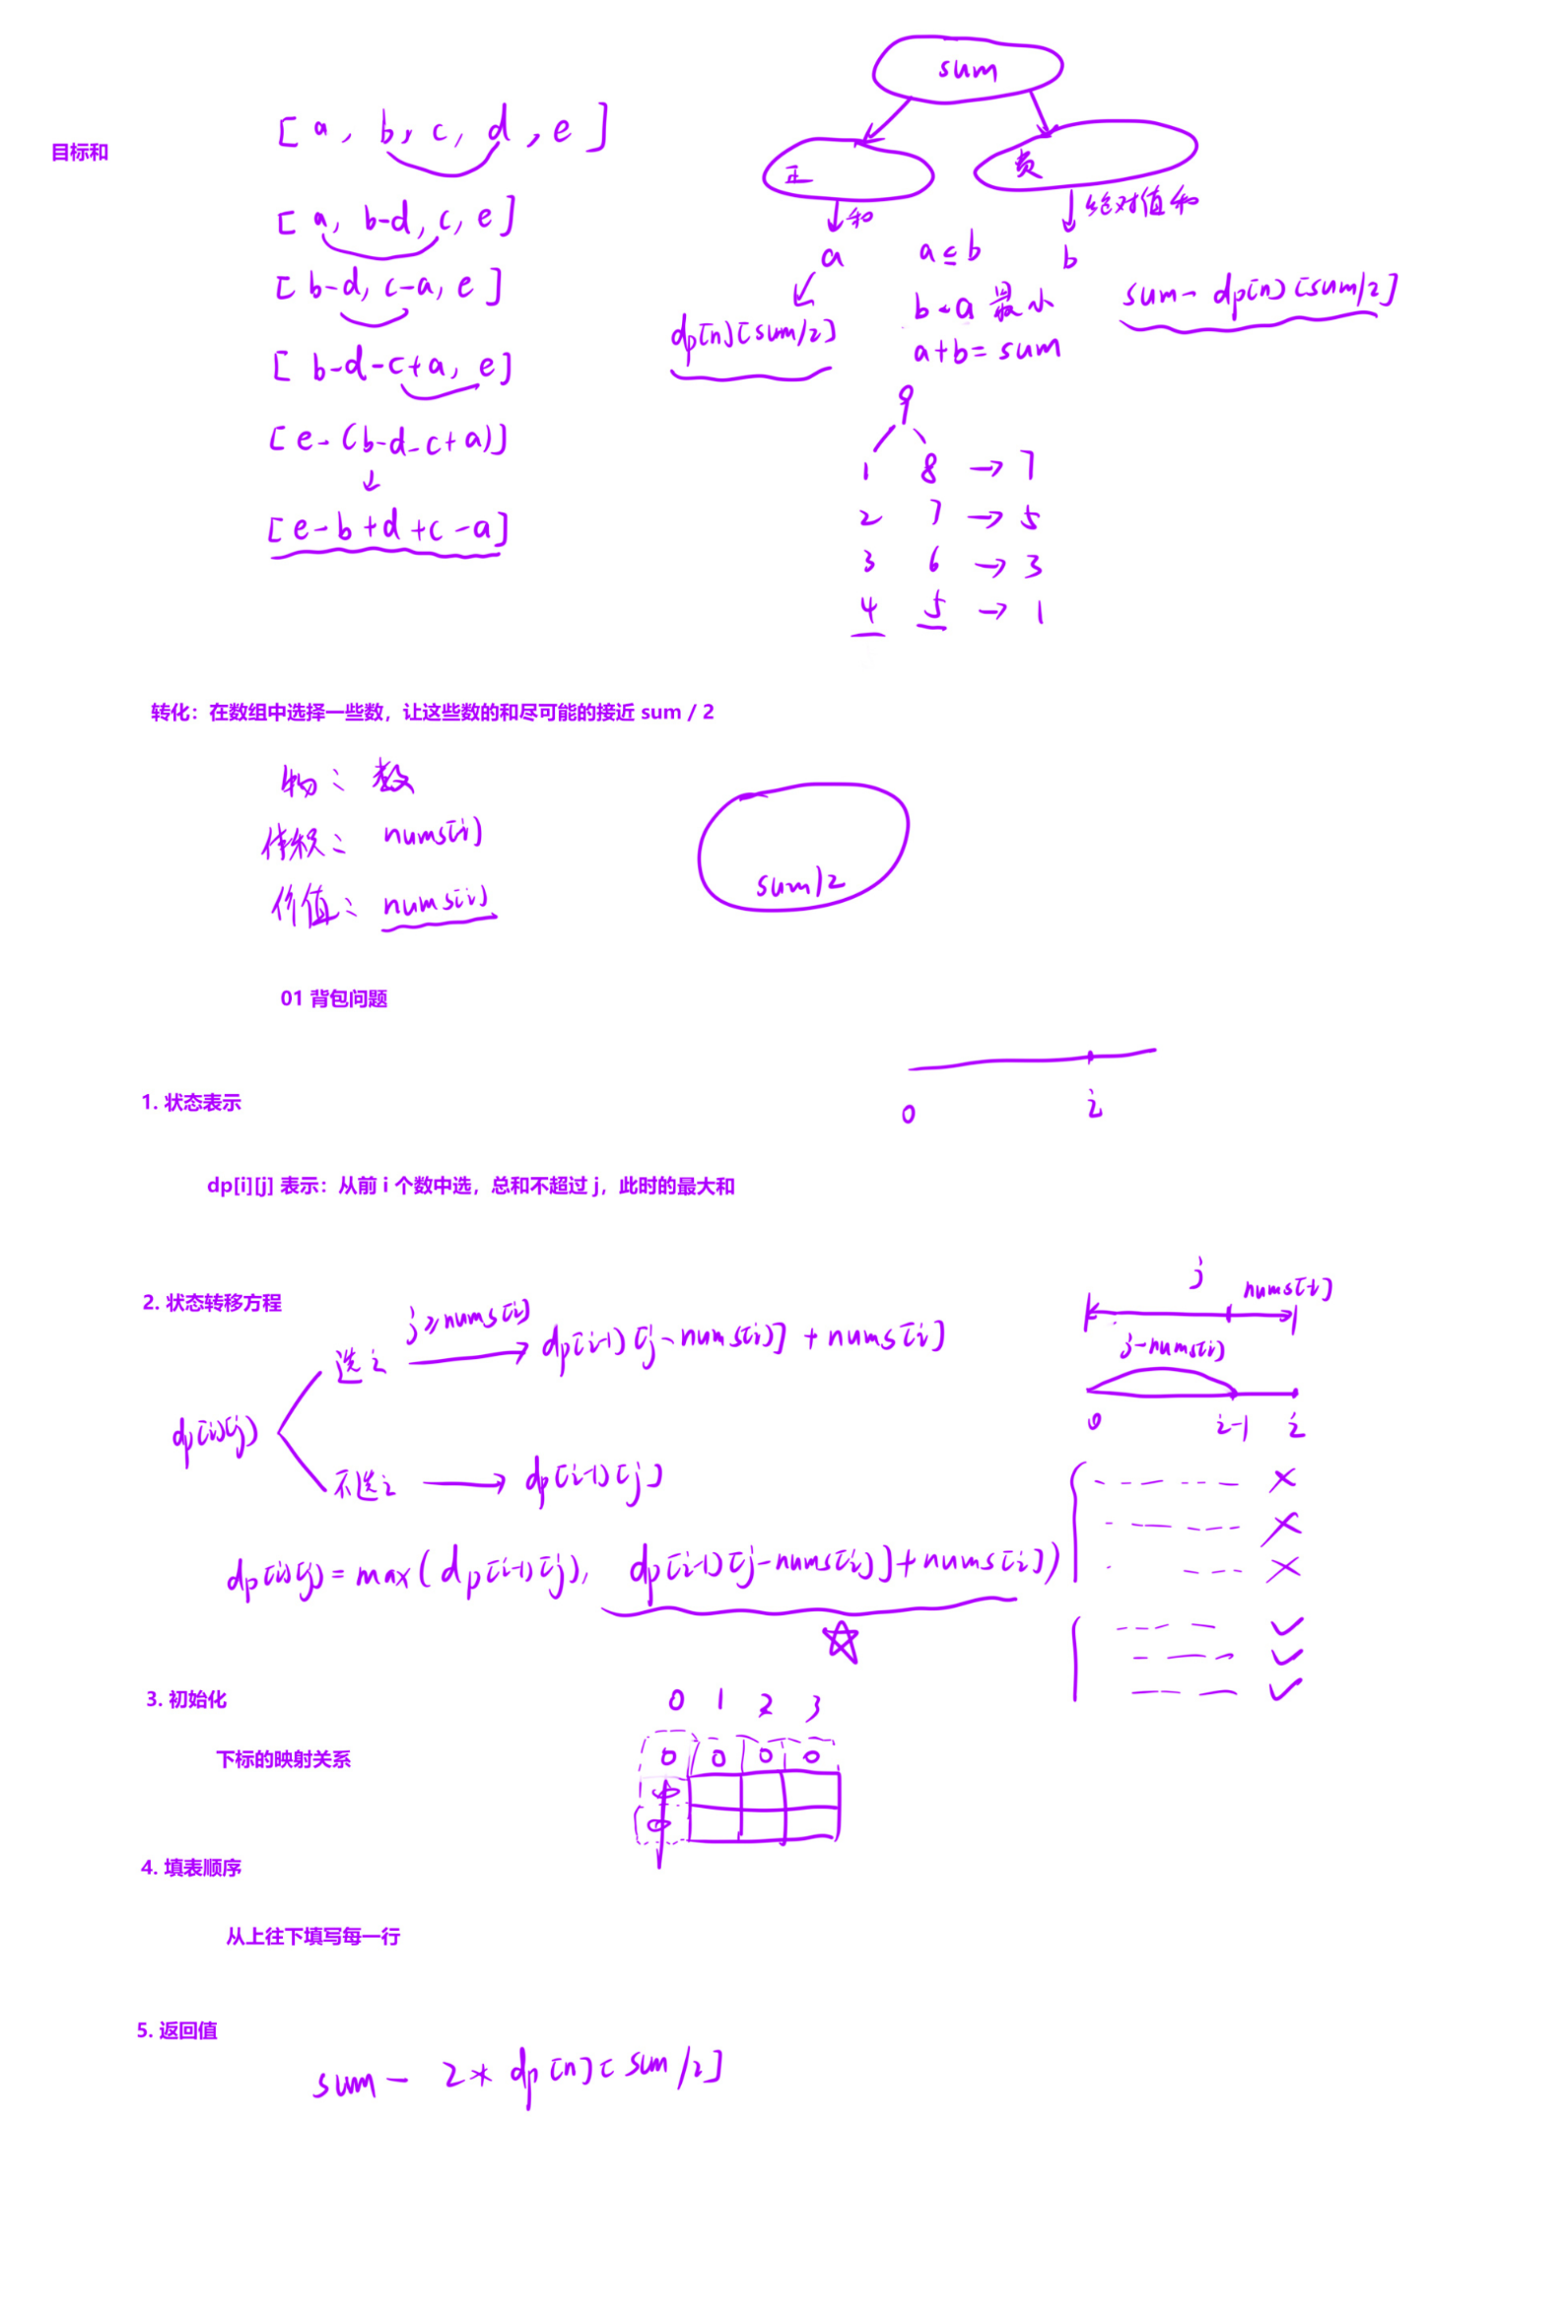 目标和
[a, b, c, d, e]
[a, b-d, c, e]
[b-d, c-a, e]
[b-d-c+a, e]
[e-(b-d-c+a)]
[e-b+d+c-a]
sum
正
负
和
绝对值和
a
a≤b
b
dp[n][sum/2]
b-a 最小
sum- dp[n][sum/2]
a+b= sum
9
1 8 → 7
2 7 → 5
3 6 → 3
4 5 → 1
转化：在数组中选择一些数，让这些数的和尽可能的接近 sum / 2
物： 数
体积： nums[i]
价值： nums[i]
sum/2
01 背包问题
0 i
1. 状态表示
dp[i][j] 表示：从前 i 个数中选，总和不超过 j，此时的最大和
2. 状态转移方程
dp[i][j]
选i
j≥nums[i]
dp[i-1][j-nums[i]] + nums[i]
不选i → dp[i-1][j]
dp[i][j] = max(dp[i-1][j], dp[i-1][j-nums[i]]+nums[i])
j nums[i]
j-nums[i]
0 i-1 i
3. 初始化
下标的映射关系
0 1 2 3
0 0 0 0
0
0
4. 填表顺序
从上往下填写每一行
5. 返回值
sum - 2* dp[n][sum/2]